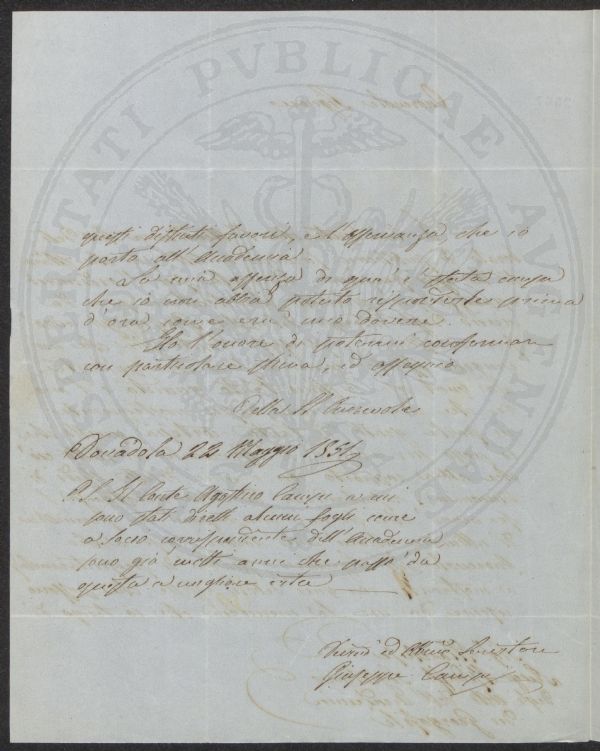 PROSPERITATI PVBLICAE AVGENDAE
questi distinti favori, e l'osservanza, che io
porto all'Accademia.
La mia assenza di quà è stata causa
che io non abbia potuto risponderle prima
d'ora come era mio dovere.
Ho l'onore di potermi confermare
con particolare stima, ed ossequio
Della
Dovadola 22 Maggio 1854
P.S. Il Conte Agostino a cui
sono stati diretti alcuni fogli come
a socio corrispondente dell'Accademia
sono già molti anni che passò da
questa a migliore vita
Servitore
Giuseppe